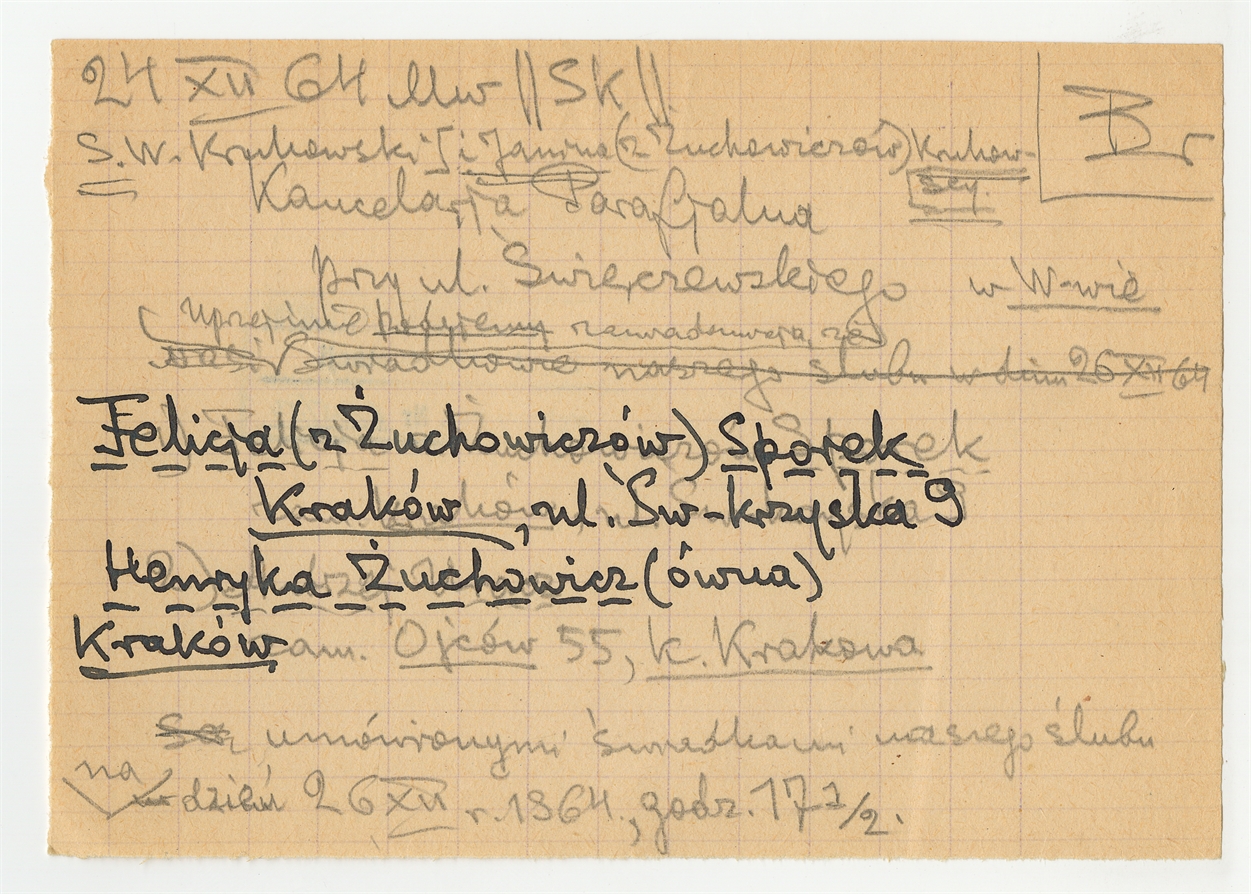 24 XII 64 Mw ||SK||
Br
S.W. Kryhowski i Janina (z Żuchowiczów) Kruhow-
scy.
Kancelarja Parafjalna
przy ul. Świerczewskiego w W-wie
uprzejmie zawiadamiają, że
nasi świadkowie naszego ślubu w dniu 26 XII 64
Felicja (z Żuchowiczów) Sporek
Kraków, ul. Św-krzyska 9
Henryka Żuchowicz (ówna)
Kraków zam. Ojców 55, k. Krakowa
Są umówionymi świadkami naszego ślubu
na
w dzień 26 XII r. 1964., godz. 17 1/2.